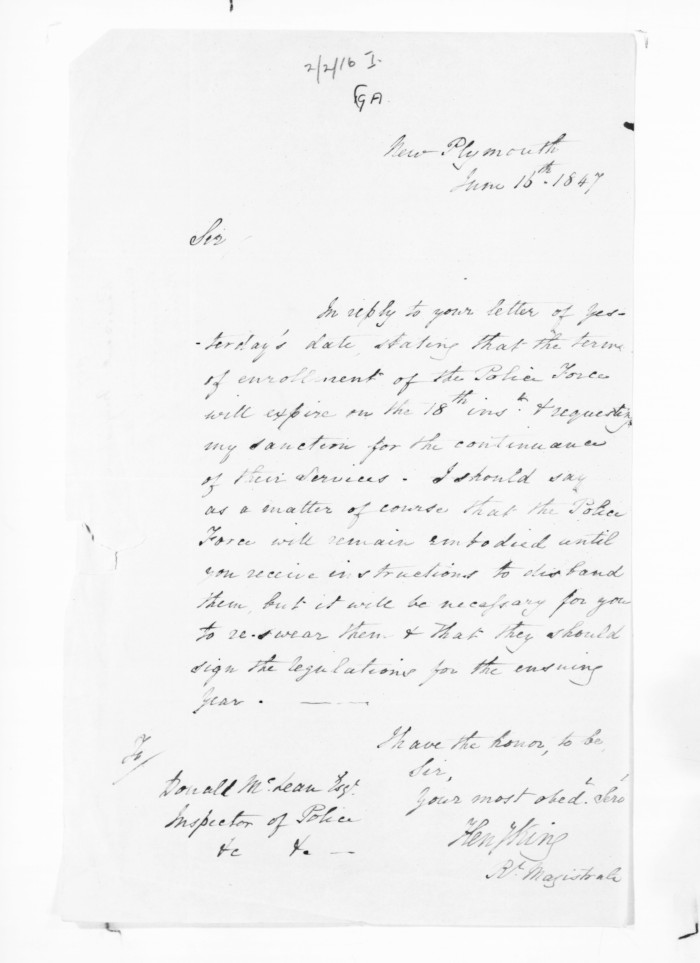 2/2/16 I.
GA
New Plymouth
June 15th. 1847
Sir
In reply to your letter of Yes-
-terday's date, stating that the terms
of enrollment of the Police Force
will expire on the 18th inst. & requesting
my sanction for the continuance
of their Services. I should say
as a matter of course that the Police
Force will remain embodied until
you receive instructions to disband
them, but it will be necessary for you
to re-swear them & that they should
sign the regulations for the ensuing
Year.
I have the honor, to be
Sir,
Your most obedt. Sert
Heny King
Rt. Magistrate
To/
Donald McLean Esqr.
Inspector of Police
&c &c